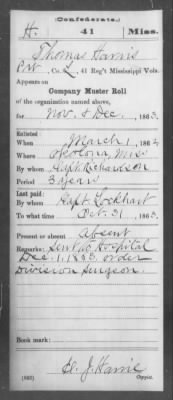 (Confederate.)
H. 41 Miss.
Thomas Harris
Pvt, Co. L, 41 Reg't Mississippi Vols.
Appears on
Company Muster Roll
of the organization named above,
for Nov. & Dec., 1863.
Enlisted:
When March 1, 1862
Where Okolona, Miss
By whom Capt. Richardson
Period 3 years
Last paid:
By whom Capt. Lockhart
To what time Oct. 31, 1863.
Present or absent Absent
Remarks: Sent to Hospital
Dec. 1, 1863, order
Division Surgeon.
Book mark:
J. Harris
Copyist.